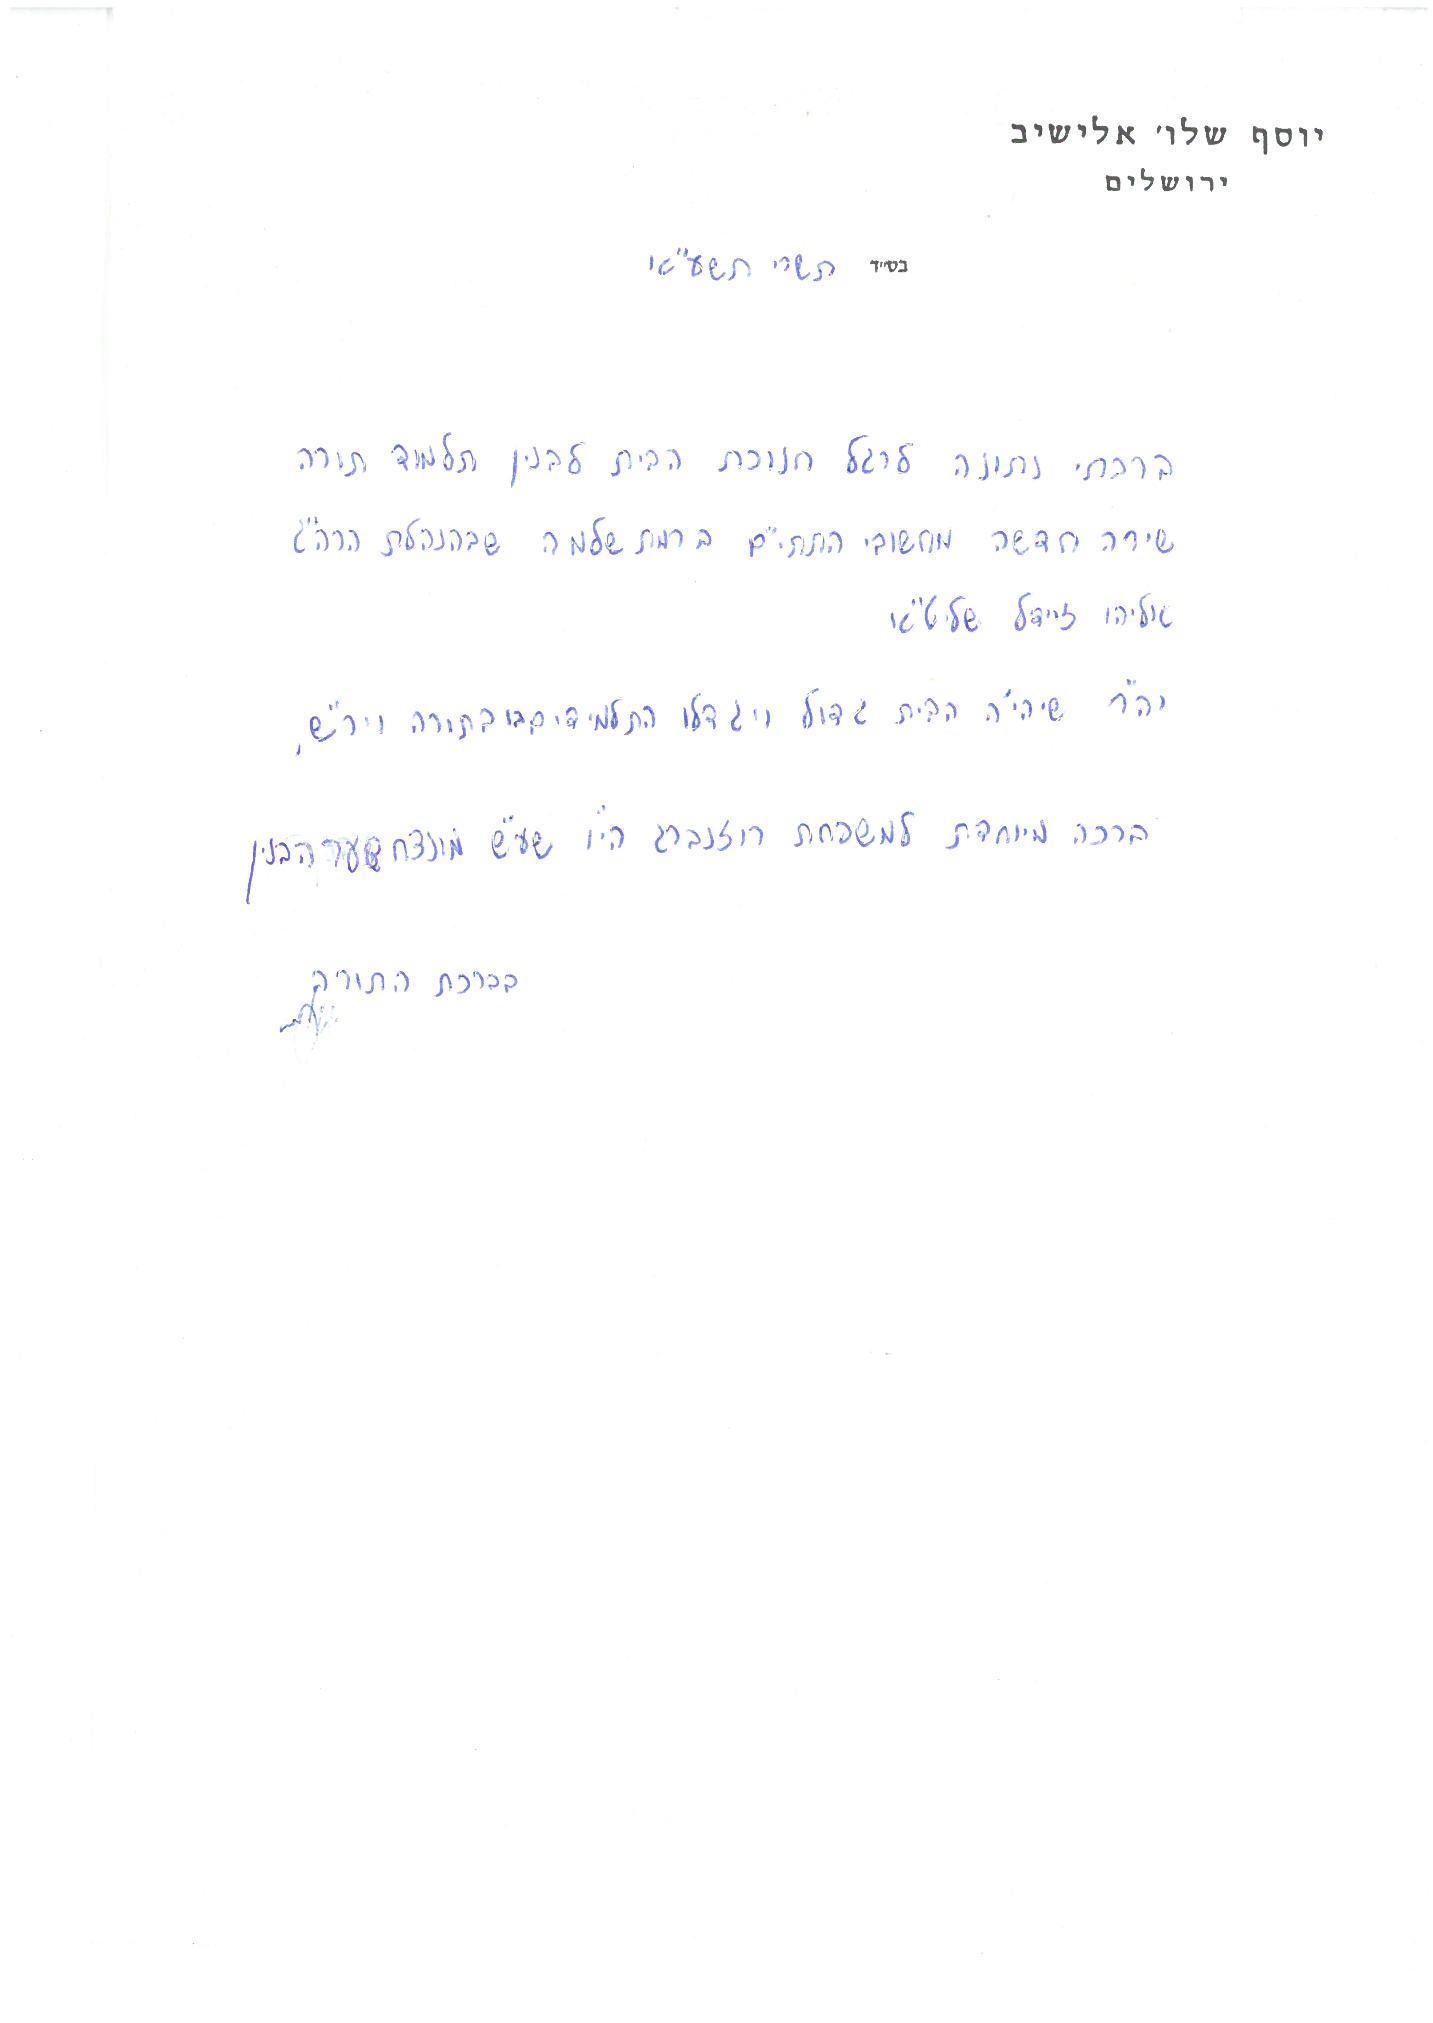 יוסף שלו׳ אלישיב
ירושלים
בס״ד תשרי תשע״א
ברכתי נתונה לרגל חנוכת הבית לבנין תלמוד תורה
שירה חדשה מחשובי התתי״ם ברמת שלמה שבהנהלת הרה״ג
אליהו זיידל שליט״א
יה״ר שיהי׳ה הבית גדול ויגדלו התלמידים בו בתורה ויר״ש,
ברכה מיוחדת למשפחת רוזנברג הי״ו שע״ש מונצח הבנין
בברכת התורה